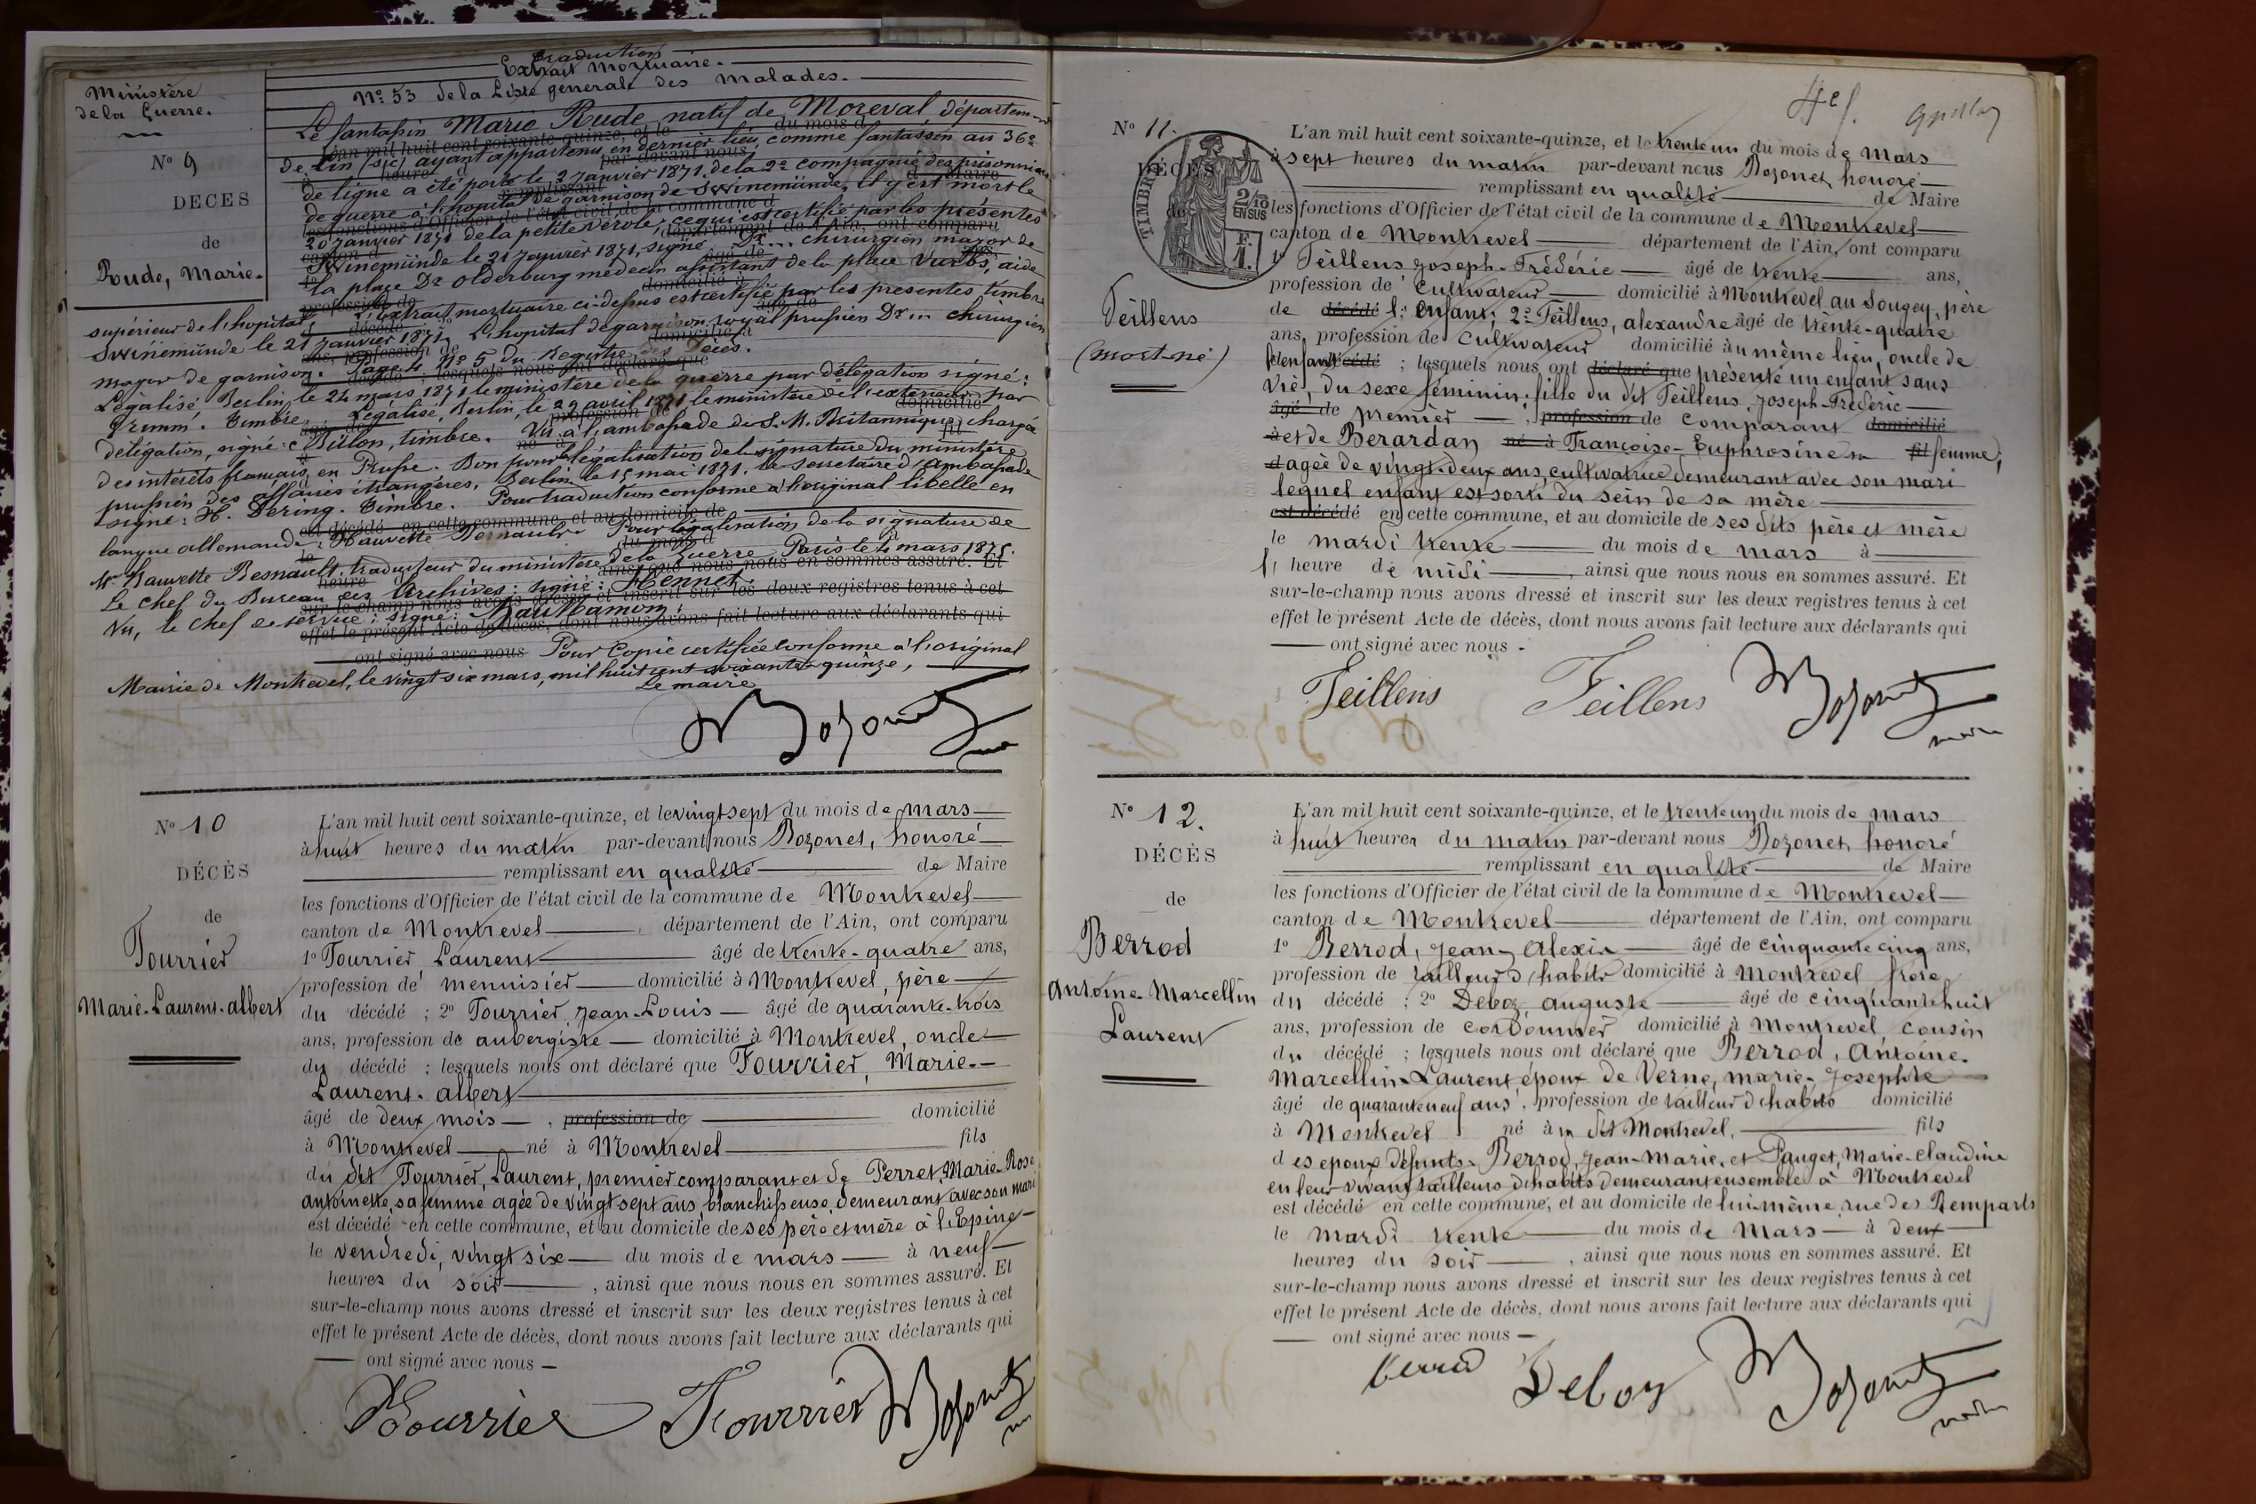 Ministère
de la Guerre.
N° 9
DÉCÈS
de
Rude, Marie.
traduction
Extrait Mortuaire.
N° 53 de la Liste générale des Malades.
Le fantassin Marie Rude, natif de Moreval département
de Lin (sic) ayant appartenu en dernier lieu, comme fantassin au 36e
de ligne a été porté le 2 janvier 1871 de la 2e compagnie des prisonniers
de guerre à l'hôpital de garnison de Swinemünde, Il y est mort le
20 janvier 1871 de la petite vérole, ce qui est certifié par les présentes
Swinemünde le 21 Janvier 1871, signé Dr... chirurgien major de
la place Dr Olderburg médecin assistant de la place aide
supérieur de l'hôpital, L'Extrait mortuaire ci-dessus est certifié par les présentes timbre
Swinemünde le 21 janvier 1871, L'hôpital de garnison royal prussien Dr... chirurgien
major de garnison. Page 4. N° 5 du Registre des Décès.
Légalisé Berlin, le 24 mars 1871 le ministère de la guerre par délégation signé:
Grimm. Timbre. Légalisé, Berlin, le 29 avril 1871, le ministère de l'extérieur par
délégation, signé: Bülon, timbre. Vu à l'ambassade de S. M. Britannique chargée
des intérêts français en Prusse. Bon pour légalisation de la signature du ministère
prussien des affaires étrangères, Berlin, le 15 mai 1871. le Secrétaire d'Ambassade
signé: H. Dering. Timbre. Pour traduction conforme à l'original libellé en
langue allemande, Hauvette Besnault. Pour légalisation de la signature de
Mr Hauvette Besnault, traducteur du ministère de la Guerre, Paris le 4 mars 1875.
Le chef du Bureau des Archives: signé: Hennet.
Vu, le chef de service: signé:
Pour Copie certifiée conforme à l'original
Mairie de Montrevel, le vingt six mars, mil huit cent soixante quinze,
Le maire
Bozonet
N° 10
DÉCÈS
de
Fourrier
Marie-Laurent-albert
L'an mil huit cent soixante-quinze, et le vingt sept du mois de mars
à huit heures du matin par-devant nous Bozonet, honoré
remplissant en qualité de Maire
les fonctions d'Officier de l'état civil de la commune de Montrevel
canton de Montrevel, département de l'Ain, ont comparu
1° Fourrier Laurent âgé de trente-quatre ans,
profession de menuisier domicilié à Montrevel, père
du décédé ; 2° Fourrier, Jean-Louis âgé de quarante-trois
ans, profession de aubergiste domicilié à Montrevel, oncle
du décédé ; lesquels nous ont déclaré que Fourrier, Marie-
Laurent-albert
âgé de deux mois, profession de domicilié
à Montrevel né à Montrevel fils
du dit Fourrier, Laurent, premier comparant et de Perret, Marie-Rose
antoinette, sa femme agée de vingt sept ans, blanchisseuse, demeurant avec son mari
est décédé en cette commune, et au domicile de ses père et mère à l'Epine
le vendredi, vingt six du mois de mars à neuf
heures du soir, ainsi que nous nous en sommes assuré. Et
sur-le-champ nous avons dressé et inscrit sur les deux registres tenus à cet
effet le présent Acte de décès, dont nous avons fait lecture aux déclarants qui
ont signé avec nous
Fourrier Fourrier Bozonet
4e f.
N° 11.
DÉCÈS
de
TIMBRE
2/10
EN SUS
F.
1.
Teillens
(mort-né)
L'an mil huit cent soixante-quinze, et le trente un du mois de mars
à sept heures du matin par-devant nous Bozonet, honoré
remplissant en qualité de Maire
les fonctions d'Officier de l'état civil de la commune de Montrevel
canton de Montrevel département de l'Ain, ont comparu
1° Teillens Joseph-Frédéric âgé de trente ans,
profession de Cultivateur domicilié à Montrevel au Sougey, père
de décédé l'enfant; 2° Teillens, alexandre âgé de trente-quatre
ans, profession de Cultivateur domicilié au même lieu, oncle de
l'enfant décédé ; lesquels nous ont déclaré que présenté un enfant sans
vie, du sexe féminin, fille du dit Teillens, Joseph-Frédéric
âgé de premier, profession de comparant domicilié
à et de Berardan né à Françoise-Euphrosine sa fil femme,
d agée de vingt-deux ans, cultivatrice demeurant avec son mari
lequel enfant est sorti du sein de sa mère
est décédé en cette commune, et au domicile de ses dits père et mère
le mardi trente du mois de mars à
l' heure de midi, ainsi que nous nous en sommes assuré. Et
sur-le-champ nous avons dressé et inscrit sur les deux registres tenus à cet
effet le présent Acte de décès, dont nous avons fait lecture aux déclarants qui
ont signé avec nous.
Teillens Teillens Bozonet
maire
N° 12.
DÉCÈS
de
Berrod
Antoine-Marcellin
Laurent
L'an mil huit cent soixante-quinze, et le trente un du mois de mars
à huit heures du matin par-devant nous Bozonet, honoré
remplissant en qualité de Maire
les fonctions d'Officier de l'état civil de la commune de Montrevel
canton de Montrevel département de l'Ain, ont comparu
1° Berrod, Jean-Alexis âgé de cinquante cinq ans,
profession de tailleur d'habits domicilié à Montrevel frère
du décédé ; 2° Deboz, auguste âgé de cinquante huit
ans, profession de cordonnier domicilié à Montrevel cousin
du décédé ; lesquels nous ont déclaré que Berrod, Antoine-
Marcellin-Laurent époux de Verne, marie-Josephte
âgé de quarante neuf ans, profession de tailleur d'habits domicilié
à Montrevel né à u dit Montrevel, fils
des époux défunts Berrod, Jean-Marie, et Pauget, Marie-Claudine
en leur vivant tailleurs d'habits demeurant ensemble à Montrevel
est décédé en cette commune, et au domicile de lui-même, rue des Remparts
le mardi trente du mois de Mars à deux
heures du soir, ainsi que nous nous en sommes assuré. Et
sur-le-champ nous avons dressé et inscrit sur les deux registres tenus à cet
effet le présent Acte de décès, dont nous avons fait lecture aux déclarants qui
ont signé avec nous
Berrod Deboz Bozonet
maire